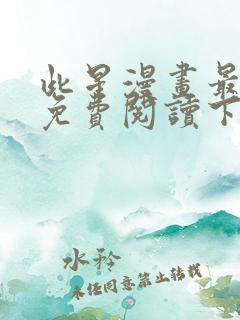 此星漫畫最
免費閱讀下
水矜
未经同意禁止转载